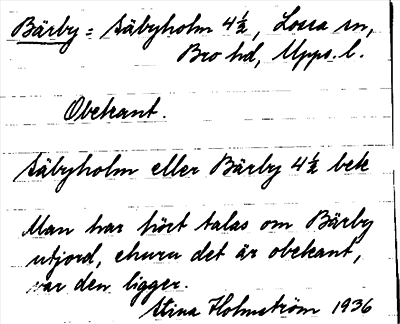 Bärby = Säbyholm 4½, Lossa sn,
Bro hd, Upps. l.
Obekant.
Säbyholm eller Bärby 4½ bek
Man har hört talas om Bärby
utjord, churu det är obekant,
var den ligger.
Stina Holmström 1936